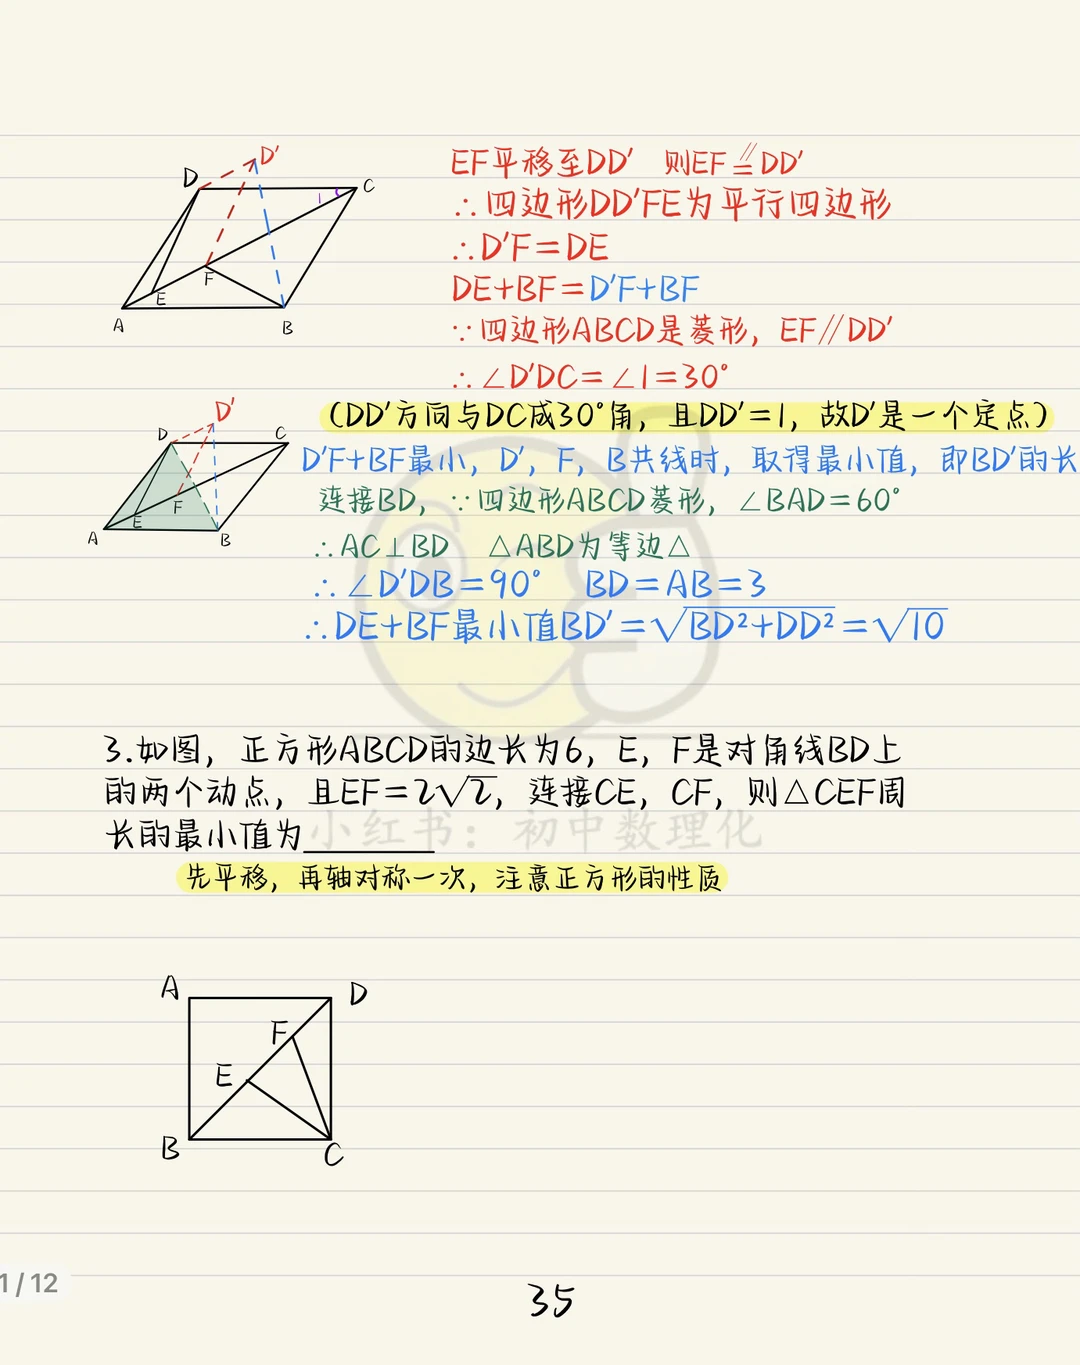 EF平移至DD′ 则EF∥=DD′
∴四边形DD′FE为平行四边形
∴D′F=DE
DE+BF=D′F+BF
∵四边形ABCD是菱形，EF∥DD′
∴∠D′DC=∠1=30°
（DD′方向与DC成30°角，且DD′=1，故D′是一个定点）
D′F+BF最小，D′，F，B共线时，取得最小值，即BD′的长
连接BD，∵四边形ABCD菱形，∠BAD=60°
∴AC⊥BD △ABD为等边△
∴∠D′DB=90° BD=AB=3
∴DE+BF最小值BD′=√BD²+DD²=√10
D
D′
C
1
F
E
A
B
D′
D
C
F
E
A
B
3.如图，正方形ABCD的边长为6，E，F是对角线BD上
的两个动点，且EF=2√2，连接CE，CF，则△CEF周
长的最小值为
小红书：初中数理化
先平移，再轴对称一次，注意正方形的性质
A
D
F
E
B
C
1/12
35